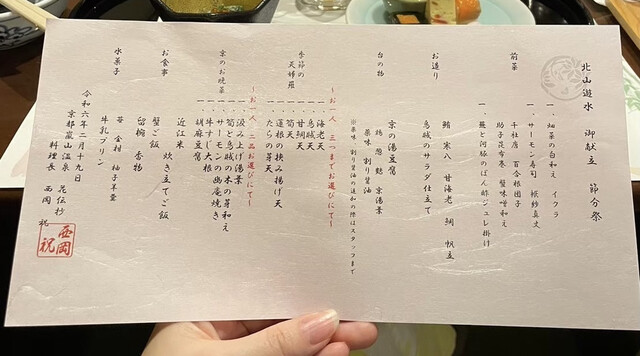 北山遊水 御献立 節分祭
前菜
一、畑菜の白和え イクラ
一、サーモン寿司
干社店 百合根団子
助子昆布巻 蟹味噌和え
一、蕪と河豚のぽん酢ジュレ掛け
お造り
鮪 甘海老 鯛 帆立
烏賊のサラダ仕立て
台の物
京の湯豆腐
鶏 葱 麩 京湯葉
薬味 割り醤油
※薬味、割り醤油の追加の際はスタッフまで
季節の天婦羅
〜お一人、三つまでお選びにて〜
一、海老天
一、烏賊天
一、甘鯛天
一、筍天
一、蓮根の挟み揚げ天
一、たらの芽天
京のお晩菜
〜お一人、二品お選びにて〜
一、汲み上げ湯葉
一、筍と烏賊の木の芽和え
一、サーモンの幽庵焼き
一、牛すじ大根
一、胡麻豆腐
お食事
近江米
蟹ご飯 炊き立てご飯
留椀 香物
水菓子
苺 金柑 柚子羊羹
牛乳プリン
令和六年二月十九日
京都嵐山温泉 花伝抄
料理長 西岡 祝
西岡祝